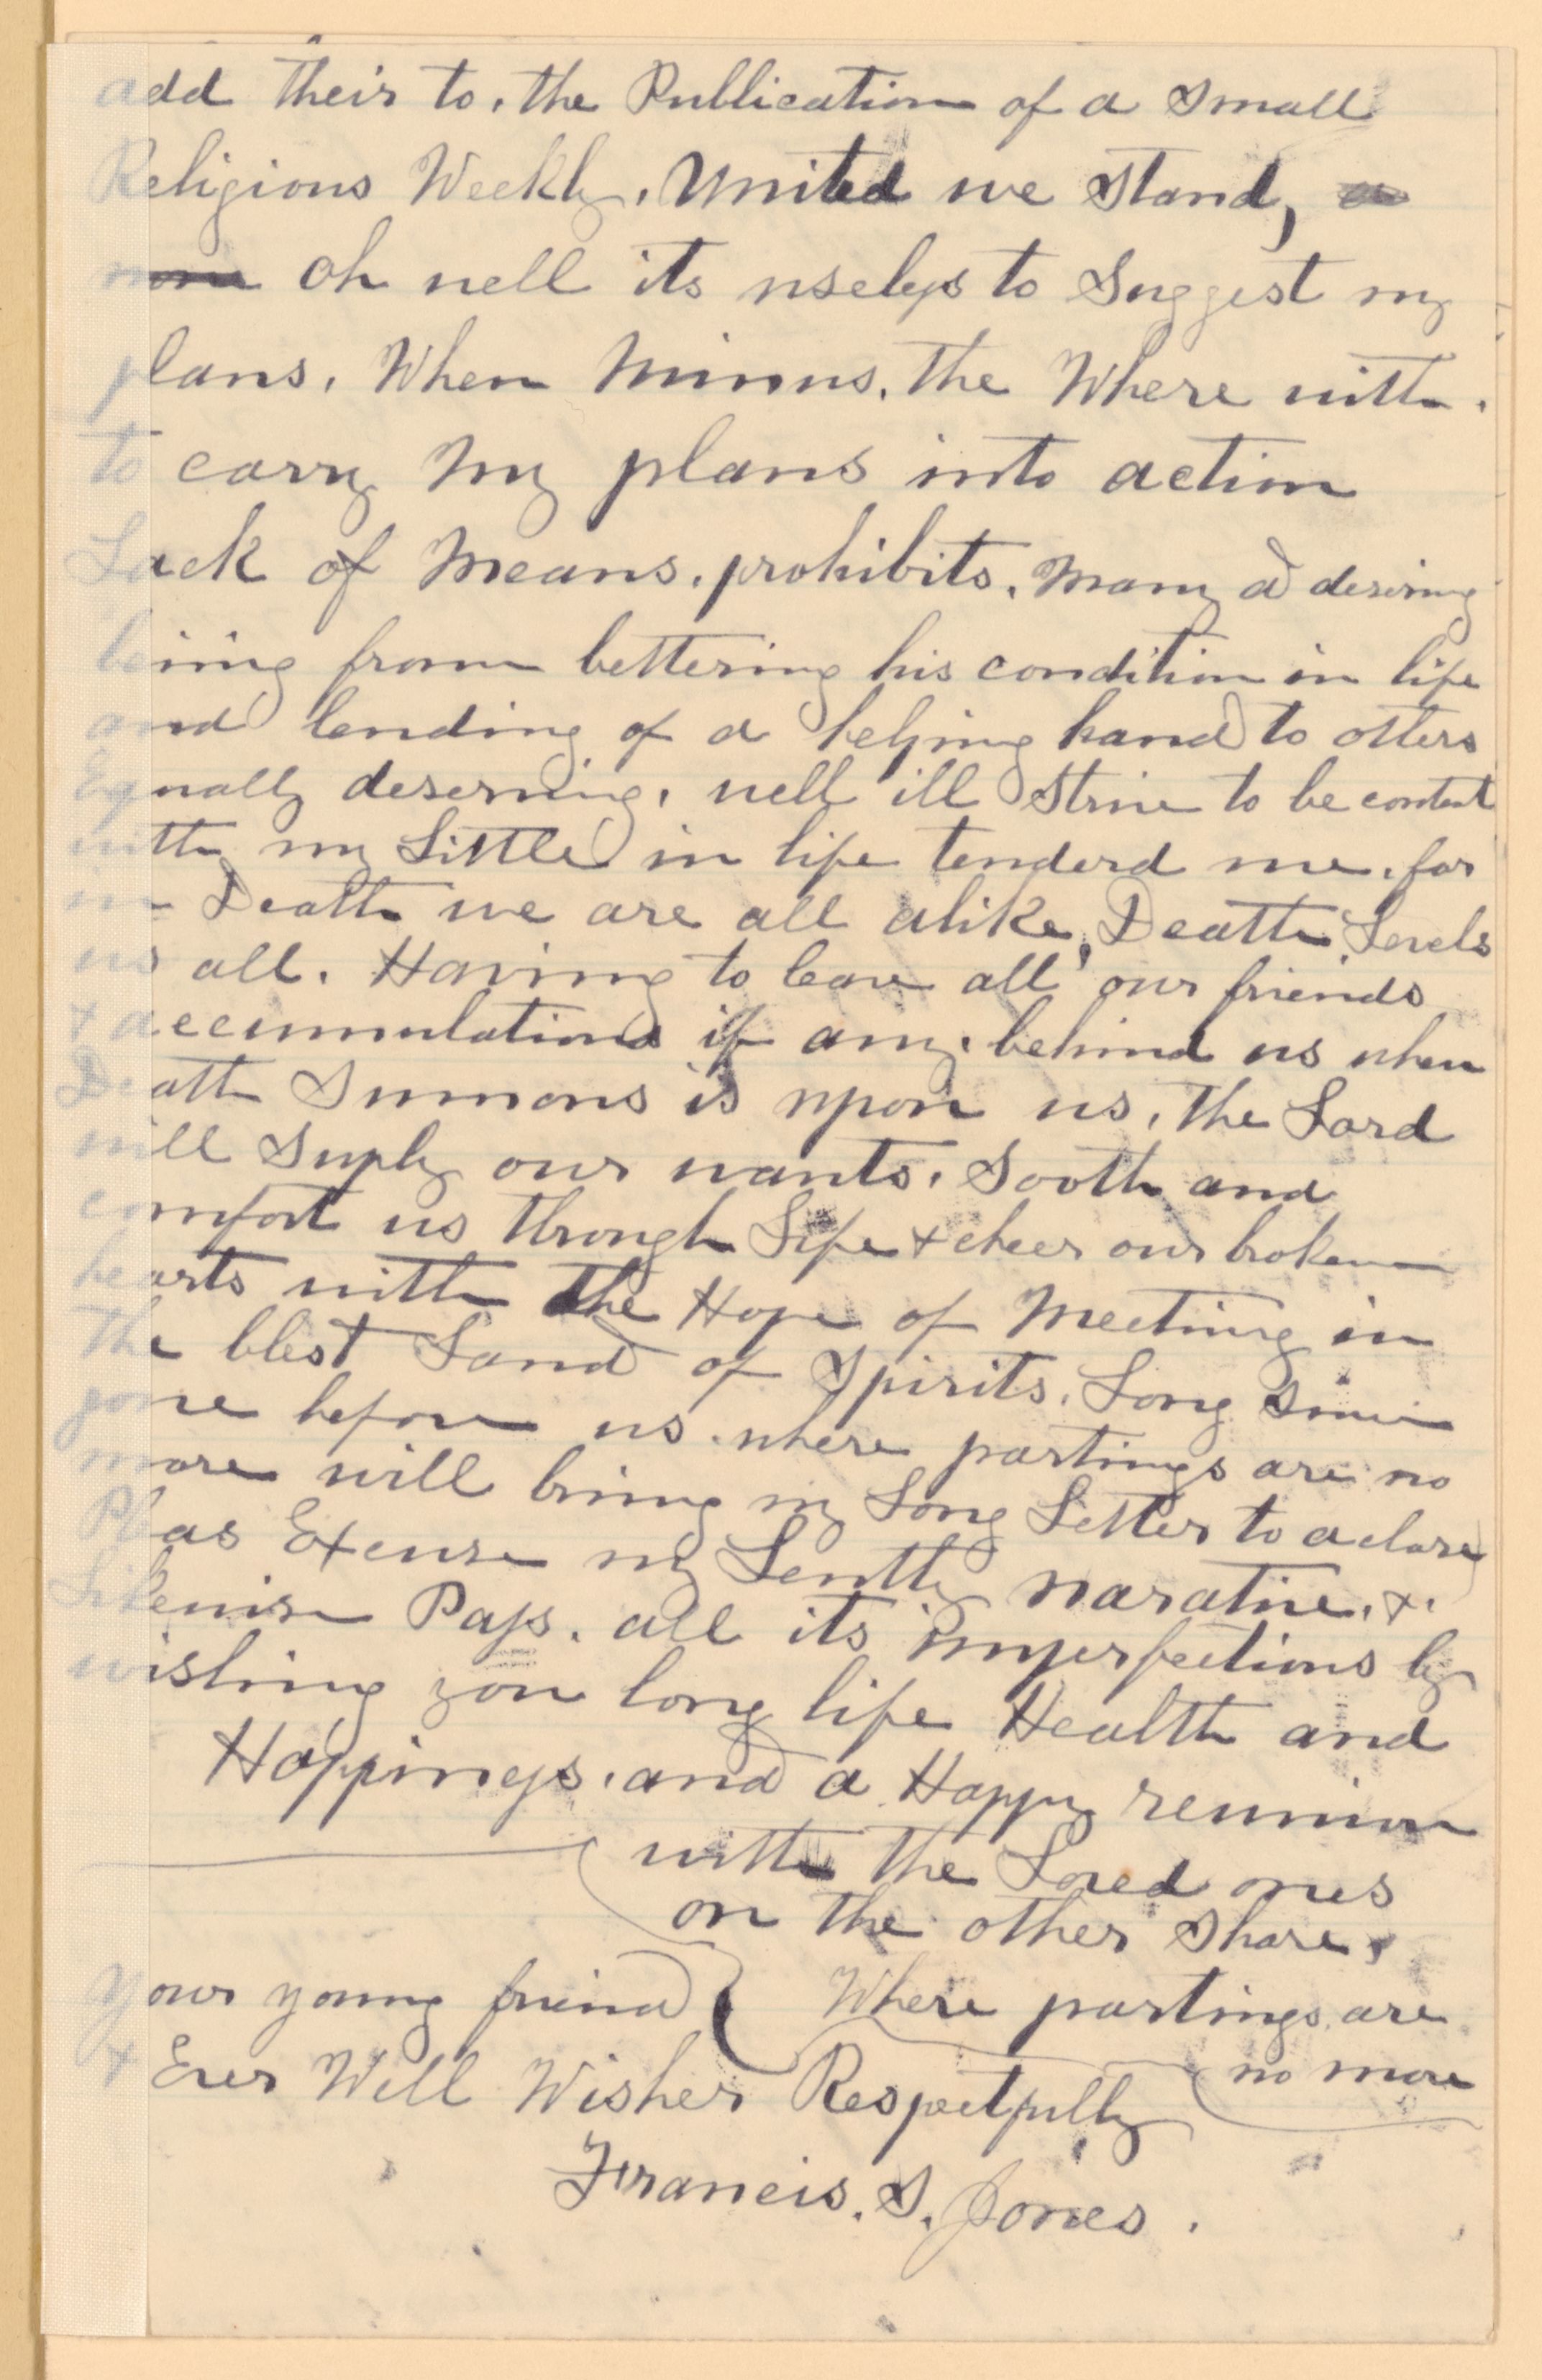 add their to, the Publication of a Small
Religious Weekly, United we Stand,
oh well its useless to Suggest my
plans, When Minus, the Where with.
to carry My plans into action
Lack of Means, prohibits, Many a desiring
being from bettering his condition in life
and lending of a helping hand to others
Equally deserving, well ill Strive to be content
with my Little in life tenderd me, for
in Death we are all alike, Death Levels
us all. Having to leave all our friends
& accumulations if any, behind us when
Death Sumons is upon us, the Lord
will Suply our wants, Sooth and
comfort us through Life & cheer our broken
hearts with the Hope of Meeting in
The blest Land of Spirits, Long Since
gone before us, where partings are no
more will bring my Long Letter to a close
Pleas Excuse my Lenthy narative, &.
Likewise Pass, all its imperfections by
wishing you long life Health and
Happiness, and a Happy reunion
with the Loved ones
on the other Shore,
Where partings are
no more
Your young friend
& Ever Well Wisher Respectfully
Francis. S. Jones.